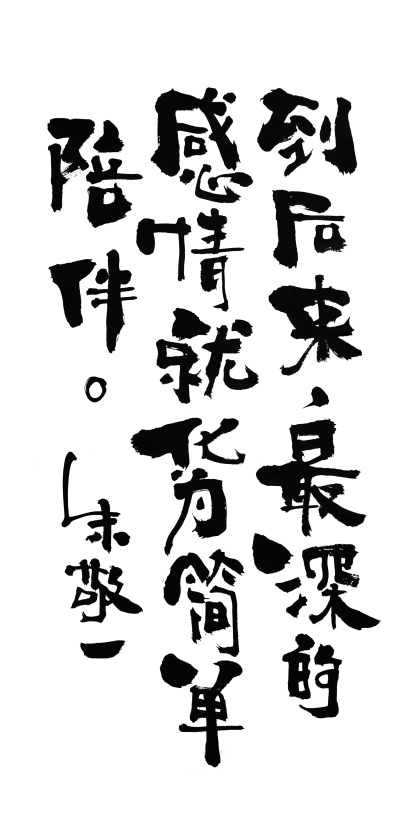 到后来，最深的
感情就化为简单
陪伴。朱敬一